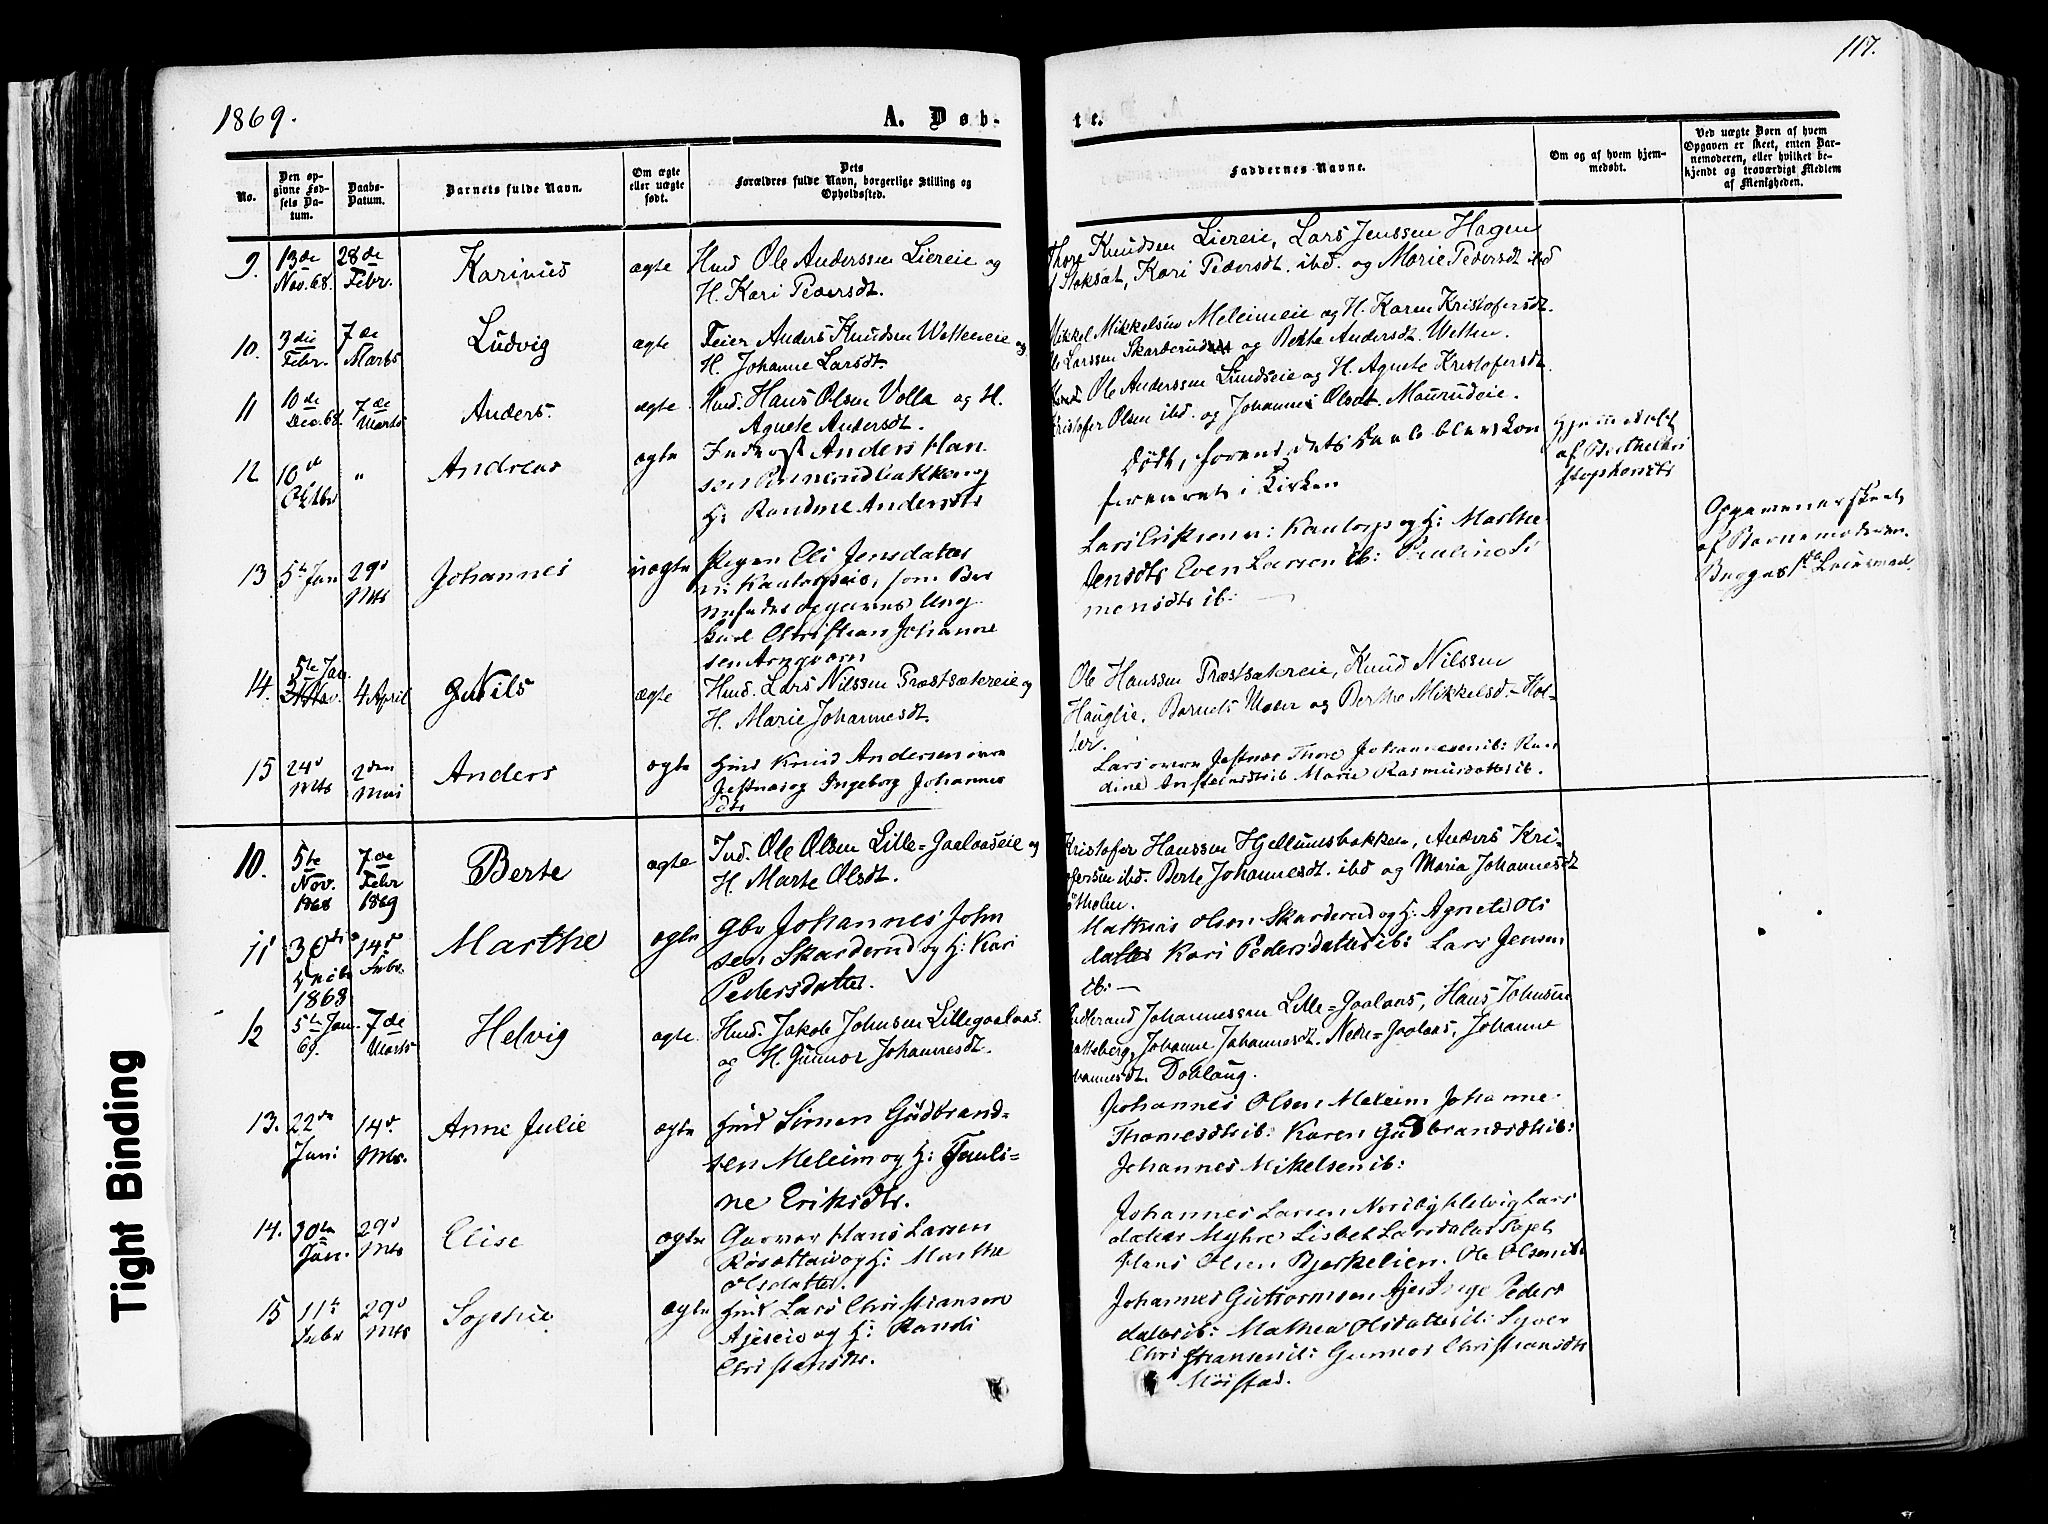 117.
1869.
A. Døb-
te.
No.
Den op-
givne Fød-
sels Da-
tum.
Daabs-
Datum.
Barnets fulde Navn.
Om ægte
eller uægte
født.
Dets
Forældres fulde Navn, borgerlige Stilling og
Opholdssted.
Faddernes Navne.
Om og af hvem hjem-
medøbt.
Ved uægte Børn af hvem
Opgaven er skeet, enten Bar-
nemoderen, eller hvilket be-
kjendt og troværdigt Medlem
af Menigheden.
9. 13de Nov. 68. 28de Febr. Karinus ægte Hmd Ole Anderssen Liereie og
H. Kari Pedersdt.
Thore Knudsen Liereie, Lars Jenssen Hagen
Stoksæt, Kari Pedersdt. ibd. og Marie Pedersdt ibd
10. 3die Febr. 7de Marts Ludvig ægte Feier Anders Knudsen Wetteneie og
H. Johanne Larsdt.
Mikkel Mikkelsen Meleimeie og H. Karen Kristofersdt.
Larssen Skarderud og Berte Andersdt. Wetten.
11 10de Dec. 68. 7de Marts Anders. ægte Hmd. Hans Olsen Volla og H.
Agnete Andersdt.
Ole Anderssen Lundseie og H. Agnete Kristofersdt.
Kristofer Olsen ibd. og Johannes Olsdt. Maurudeie.
12 10d Oktbr " Andreas ægte Inderst Anders Han
sen og
H: Randine Andersdts
Døde, forend dets Daab blev kon
fereret i Kirken
Hjemmedøbt
af Berthe
stophersdts
13 5t Jan 29d Mts Johannes uægte Pigen Eli Jensdatter
som Bar
nefader opgaves Ung
karl Christian Johanne
sen Arnqværn
Lars Eriksen n: Kantorp og H: Marthe
Jensdts Even Larsen ib: Pauline Si
mensdts ib:
Opgaven er skeet
af Barnemoderen.
14. 5te Jan. 4 April Nils ægte Hmd. Lars Nilssen Præstsætereie og
H. Marie Johannesdt.
Ole Hanssen Præstsætereie, Knud Nilssen
Hauglie, Barnets Moder og Berthe Mikkelsd. Hol-
ter.
15 24d Mts 2den Mai Anders ægte Hmd Knud Andersen øvre
Jestnæs og Ingeborg Johannes
dts
Lars øvre Jestnæs Thore Johannesen ib: Ran
dine Ansteinsdts ib Marie Rasmusdatter ib.
10. 5te Nov. 1868 7de Febr 1869 Berte ægte Ind. Ole Olsen Lille-Gaalaaseie og
H. Marte Olsdt.
Kristofer Hanssen Hjellumsbakken, Anders Kri-
fersen ibd. Berte Johannesdt. ibd og Maria Johannesdt
11 1868 14d Febr. Marthe ægte Gbr Johannes John
sen Skarderud og H: Kari
Pedersdatter.
Mathias Olsen Skarderud og H: Agnete Ols
datter Kari Pedersdatter ib: Lars Jensen
ib:
12 5te Jan. 69. 7de Marts Helvig ægte. Hmd. Jakob Johnsen Lillegaalaas.
og H. Gunnor Johannesdt.
Johannessen Lille-Gaalaas, Hans Johnsen
Johanne Johannesdt. Nedre-Gaalaas, Johanne
Johannesdt. Doblaug.
13. 22de Jan: 14d. Mts. Anne Julie ægte Hmd Simen Gudbrand-
sen Meleim og H: Pauli-
ne Eriksdts.
Johannes Olsen Meleim Johanne
Thomesdts ib: Karen Gudbrandsdts ib:
Johannes Mikelsen ib:
14. 30te Jan. 29d Mts Elise ægte Garver Hans Larsen
og H: Marthe
Olsdatter.
Johannes Larsen Nordby Helvig Lars
datter Myhre Lisbet Larsdatter
Hans Olsen Bjerkelien. Ole Olsen ib
15 11te Febr 29d Mts Sophie ægte Hmd Lars Christiansen
Ajerseie og H: Randi
Christiansdts.
Johannes Guttormsen Ajer Inge Peders
datter ib: Mathea Olsdatter ib: Syver
Christiansen ib: Gunnor Christiansdts
Møistad.
Tight Binding